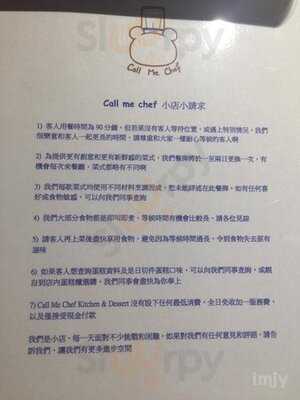 Call Me Chef
Call me chef 小店小請求
1) 客人用餐時間為 90 分鐘，但若果沒有客人等待位置，或遇上特別情況，我們
很樂意和客人一起更長的時間，請尊重和大家一樣耐心等候的客人啊
2) 為提供更有創意和更有新鮮感的菜式，我們餐牌將於一至兩日更換一次，有
機會每次來餐廳，菜式都略有不同啊
3) 我們每款菜式均使用不同材料烹調而成，但未能詳述在此餐牌，如有任何喜
好或食物敏感，可以向我們同事查詢
4) 我們大部分食物都是即叫即煮，等候時間有機會比較長，請各位見諒
5) 請客人再上菜後盡快享用食物，避免因為等候時間過長，令到食物失去原有
滋味
6) 如果客人想查詢蛋糕資料及是日切件蛋糕口味，可以向我們同事查詢，或親
自到店內蛋糕櫃選購，我們同事會盡快為你奉上
7) Call Me Chef Kitchen & Dessert 沒有設下任何最低消費，全日免收加一服務費，
以及僅接受現金付款
我們是小店，每一天面對不少挑戰和困難，如果對我們有任何意見和評語，請告
訴我們，讓我們有更多進步空間
Sluurpy
imjy